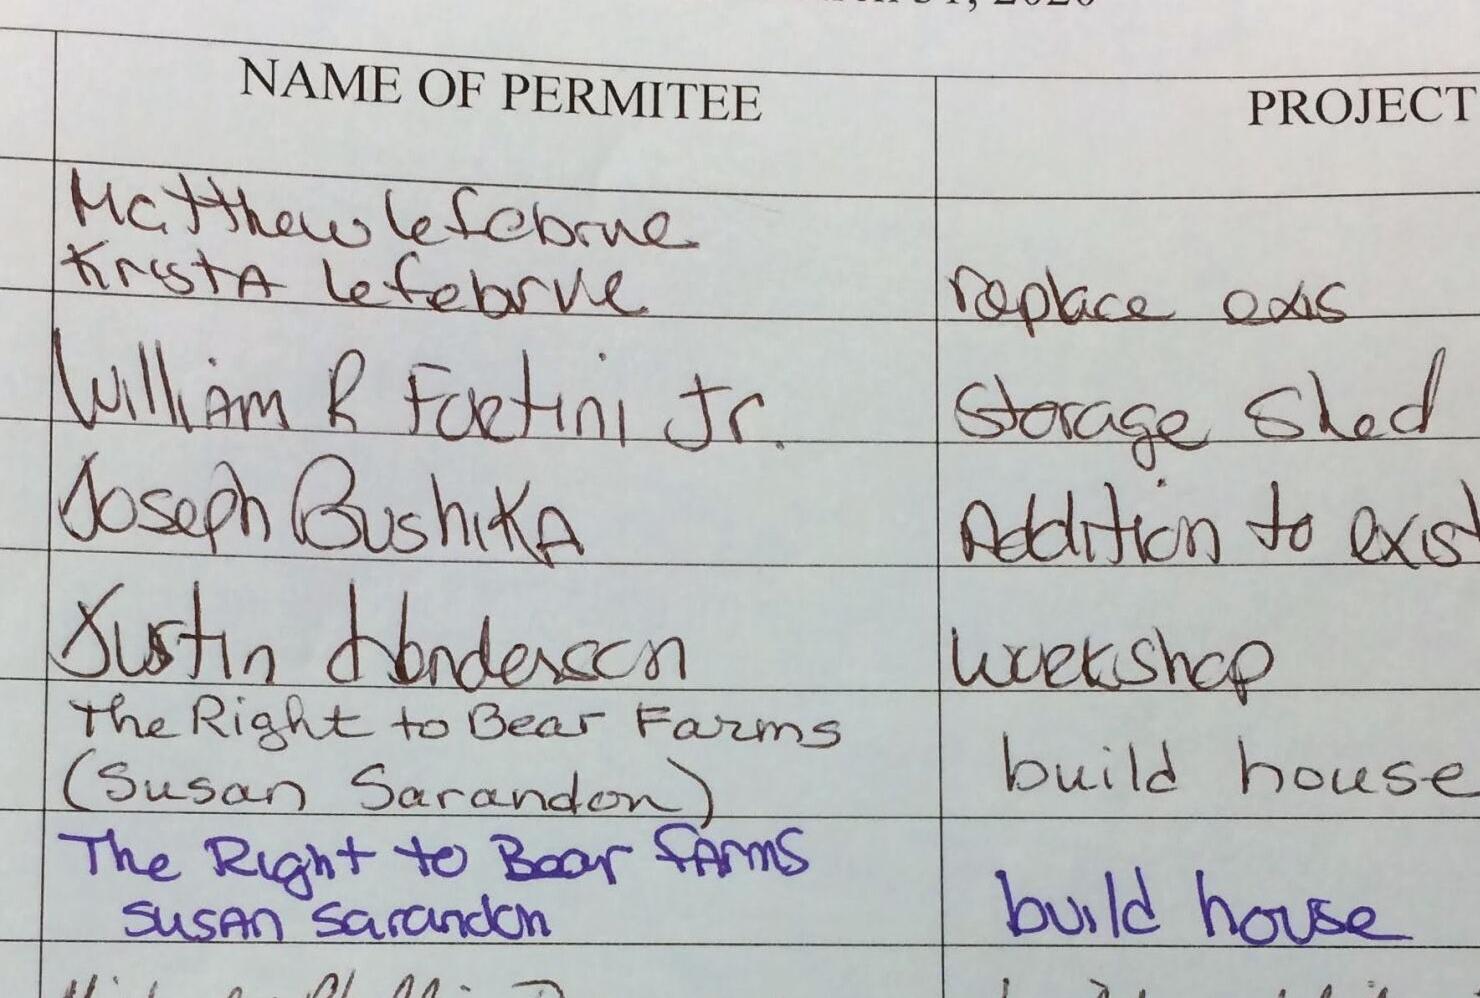 NAME OF PERMITEE
PROJECT
Matthew Lefebrve
KristA Lefebrve
replace exis
William R Fortini Jr.
Storage Shed
Joseph BushiKA
Addition to exist
Justin Henderson
workshop
The Right to Bear Farms
(Susan Sarandon)
build house
The Right to Bear fArms
SusAn Sarandon
build house